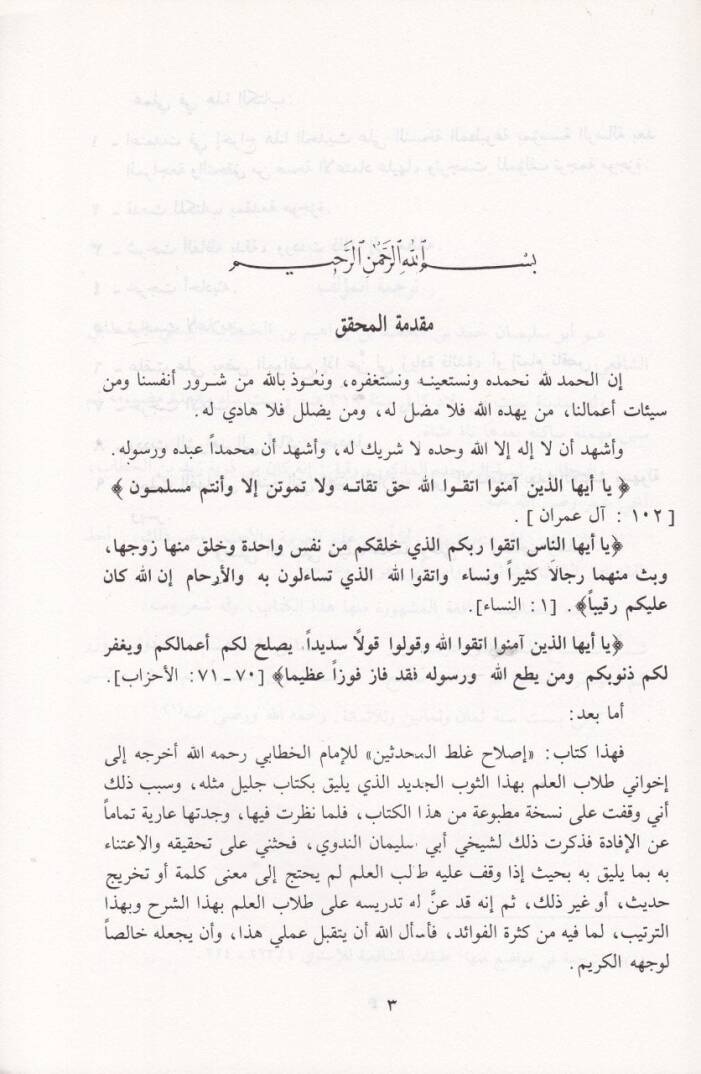 بسم الله الرحمن الرحيم
مقدمة المحقق
إن الحمد لله نحمده ونستعينه ونستغفره، ونعوذ بالله من شرور أنفسنا ومن
سيئات أعمالنا، من يهده الله فلا مضل له، ومن يضلل فلا هادي له.
وأشهد أن لا إله إلا الله وحده لا شريك له، وأشهد أن محمداً عبده ورسوله.
﴿ يا أيها الذين آمنوا اتقوا الله حق تقاته ولا تموتن إلا وأنتم مسلمون ﴾
[ ١٠٢ : آل عمران ] .
﴿يا أيها الناس اتقوا ربكم الذي خلقكم من نفس واحدة وخلق منها زوجها،
وبث منهما رجالاً كثيراً ونساء واتقوا الله الذي تساءلون به والأرحام إن الله كان
عليكم رقيباً﴾. [١: النساء].
﴿يا أيها الذين آمنوا اتقوا الله وقولوا قولاً سديداً. يصلح لكم أعمالكم ويغفر
لكم ذنوبكم ومن يطع الله ورسوله فقد فاز فوزاً عظيما﴾ [٧٠ ـ ٧١: الأحزاب].
أما بعد:
فهذا كتاب: «إصلاح غلط المحدثين» للإمام الخطابي رحمه الله أخرجه إلى
إخواني طلاب العلم بهذا الثوب الجديد الذي يليق بكتاب جليل مثله، وسبب ذلك
أني وقفت على نسخة مطبوعة من هذا الكتاب، فلما نظرت فيها، وجدتها عارية تماماً
عن الإفادة فذكرت ذلك لشيخي أبي سليمان الندوي، فحثني على تحقيقه والاعتناء
به بما يليق به بحيث إذا وقف عليه طالب العلم لم يحتج إلى معنى كلمة أو تخريج
حديث، أو غير ذلك، ثم إنه قد عنَّ له تدريسه على طلاب العلم بهذا الشرح وبهذا
الترتيب، لما فيه من كثرة الفوائد، فأسأل الله أن يتقبل عملي هذا، وأن يجعله خالصاً
لوجهه الكريم.
٣